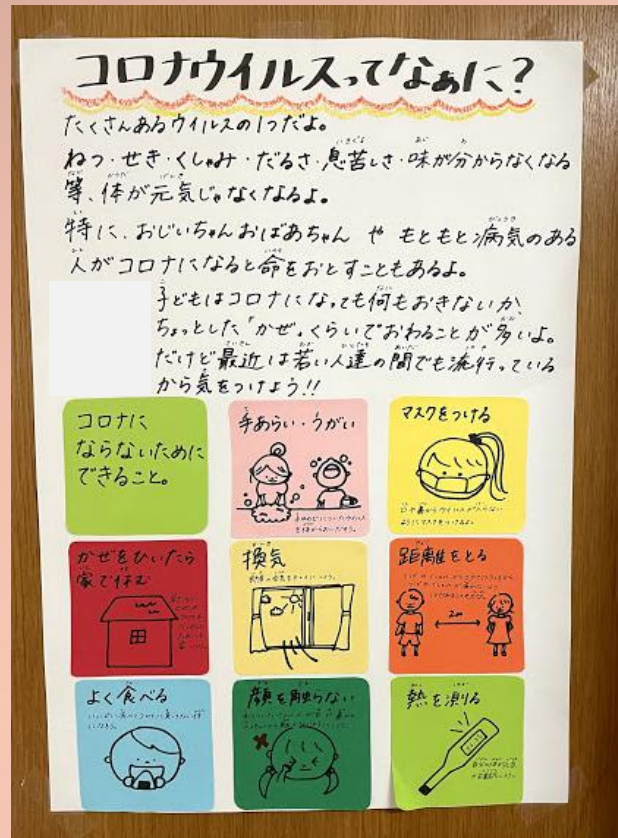 コロナウイルスってなぁに?
たくさんあるウイルスの1つだよ。
ねつ・せき・くしゃみ・だるさ・息苦しさ・味が分からなくなる
等、体が元気じゃなくなるよ。
特に、おじいちゃんおばあちゃん や もともと病気のある
人がコロナになると命をおとすこともあるよ。
子どもはコロナになっても何もおきないか、
ちょっとした「かぜ」くらいでおわることが多いよ。
だけど最近は若い人達の間でも流行っている
から気をつけよう!!
コロナに
ならないために
できること。
手あらい・うがい
マスクをつける
かぜをひいたら
家で休む
換気
距離をとる
2m
よく食べる
顔を触らない
熱を測る